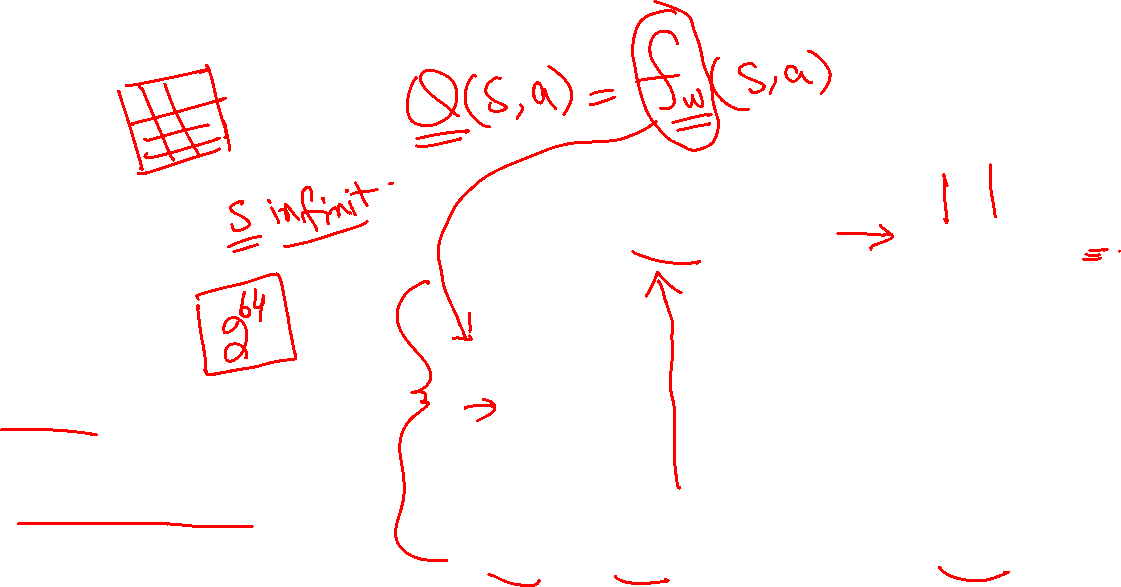 Q(s,a) = f_w(s,a)
S infinit
2^64